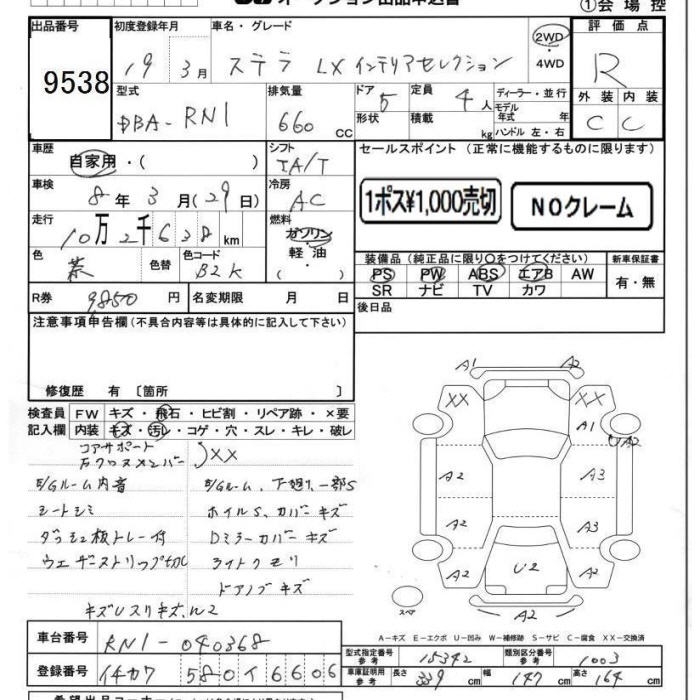 オークション出品申込書
①会場控
出品番号 9538
初度登録年月 19 3月
車名・グレード ステラ LX インテリアセレクション
2WD・4WD
評価点 R
外装 C 内装 C
型式 DBA-RN1
排気量 660 CC
ドア 5
形状
定員 4人
積載 kg
ディーラー・並行
モデル年式 年
ハンドル 左・右
車歴 自家用・( )
シフト IA/T
セールスポイント(正常に機能するものに限ります)
1ポス¥1,000売切
NOクレーム
車検 8年3月(29日)
冷房 AC
走行 10万2千638km
燃料 ガソリン・軽油( )
色 茶
色替
色コード B2K
装備品(純正品に限り○をつけてください)
新車保証書 有・無
PS PW ABS エアB AW
SR ナビ TV カワ
R券 9,850円
名変期限 月 日
後日品
注意事項申告欄(不具合内容等は具体的に記入して下さい)
修復歴 有〔箇所 〕
検査員記入欄
FW キズ・飛石・ヒビ割・リペア跡・×要
内装 キズ・汚レ・コゲ・穴・スレ・キレ・破レ
コアサポート
左クロスメンバー XX
E/Gルーム内音
E/Gルーム、下廻り一部S
シートシミ
ホイルS、カバーキズ
ダッシュ板トレー付
Dミラーカバーキズ
ウェザーストリップ切れ
ライトクモリ
ドアノブキズ
キズUスリキズ、W2
A1 A2
XX XX
A1 UA2
A2 A3
A2 A3
A2 U2 A2
スペア
A2
A-キズ E-エクボ U-凹み W-補修跡 S-サビ C-腐食 XX-交換済
車台番号 RN1-040368
登録番号 イチカワ 580 イ 6606
型式指定番号 参考 15342
類別区分番号 参考 1003
車庫証明用 参考 長さ 339cm 幅 147cm 高さ 164cm